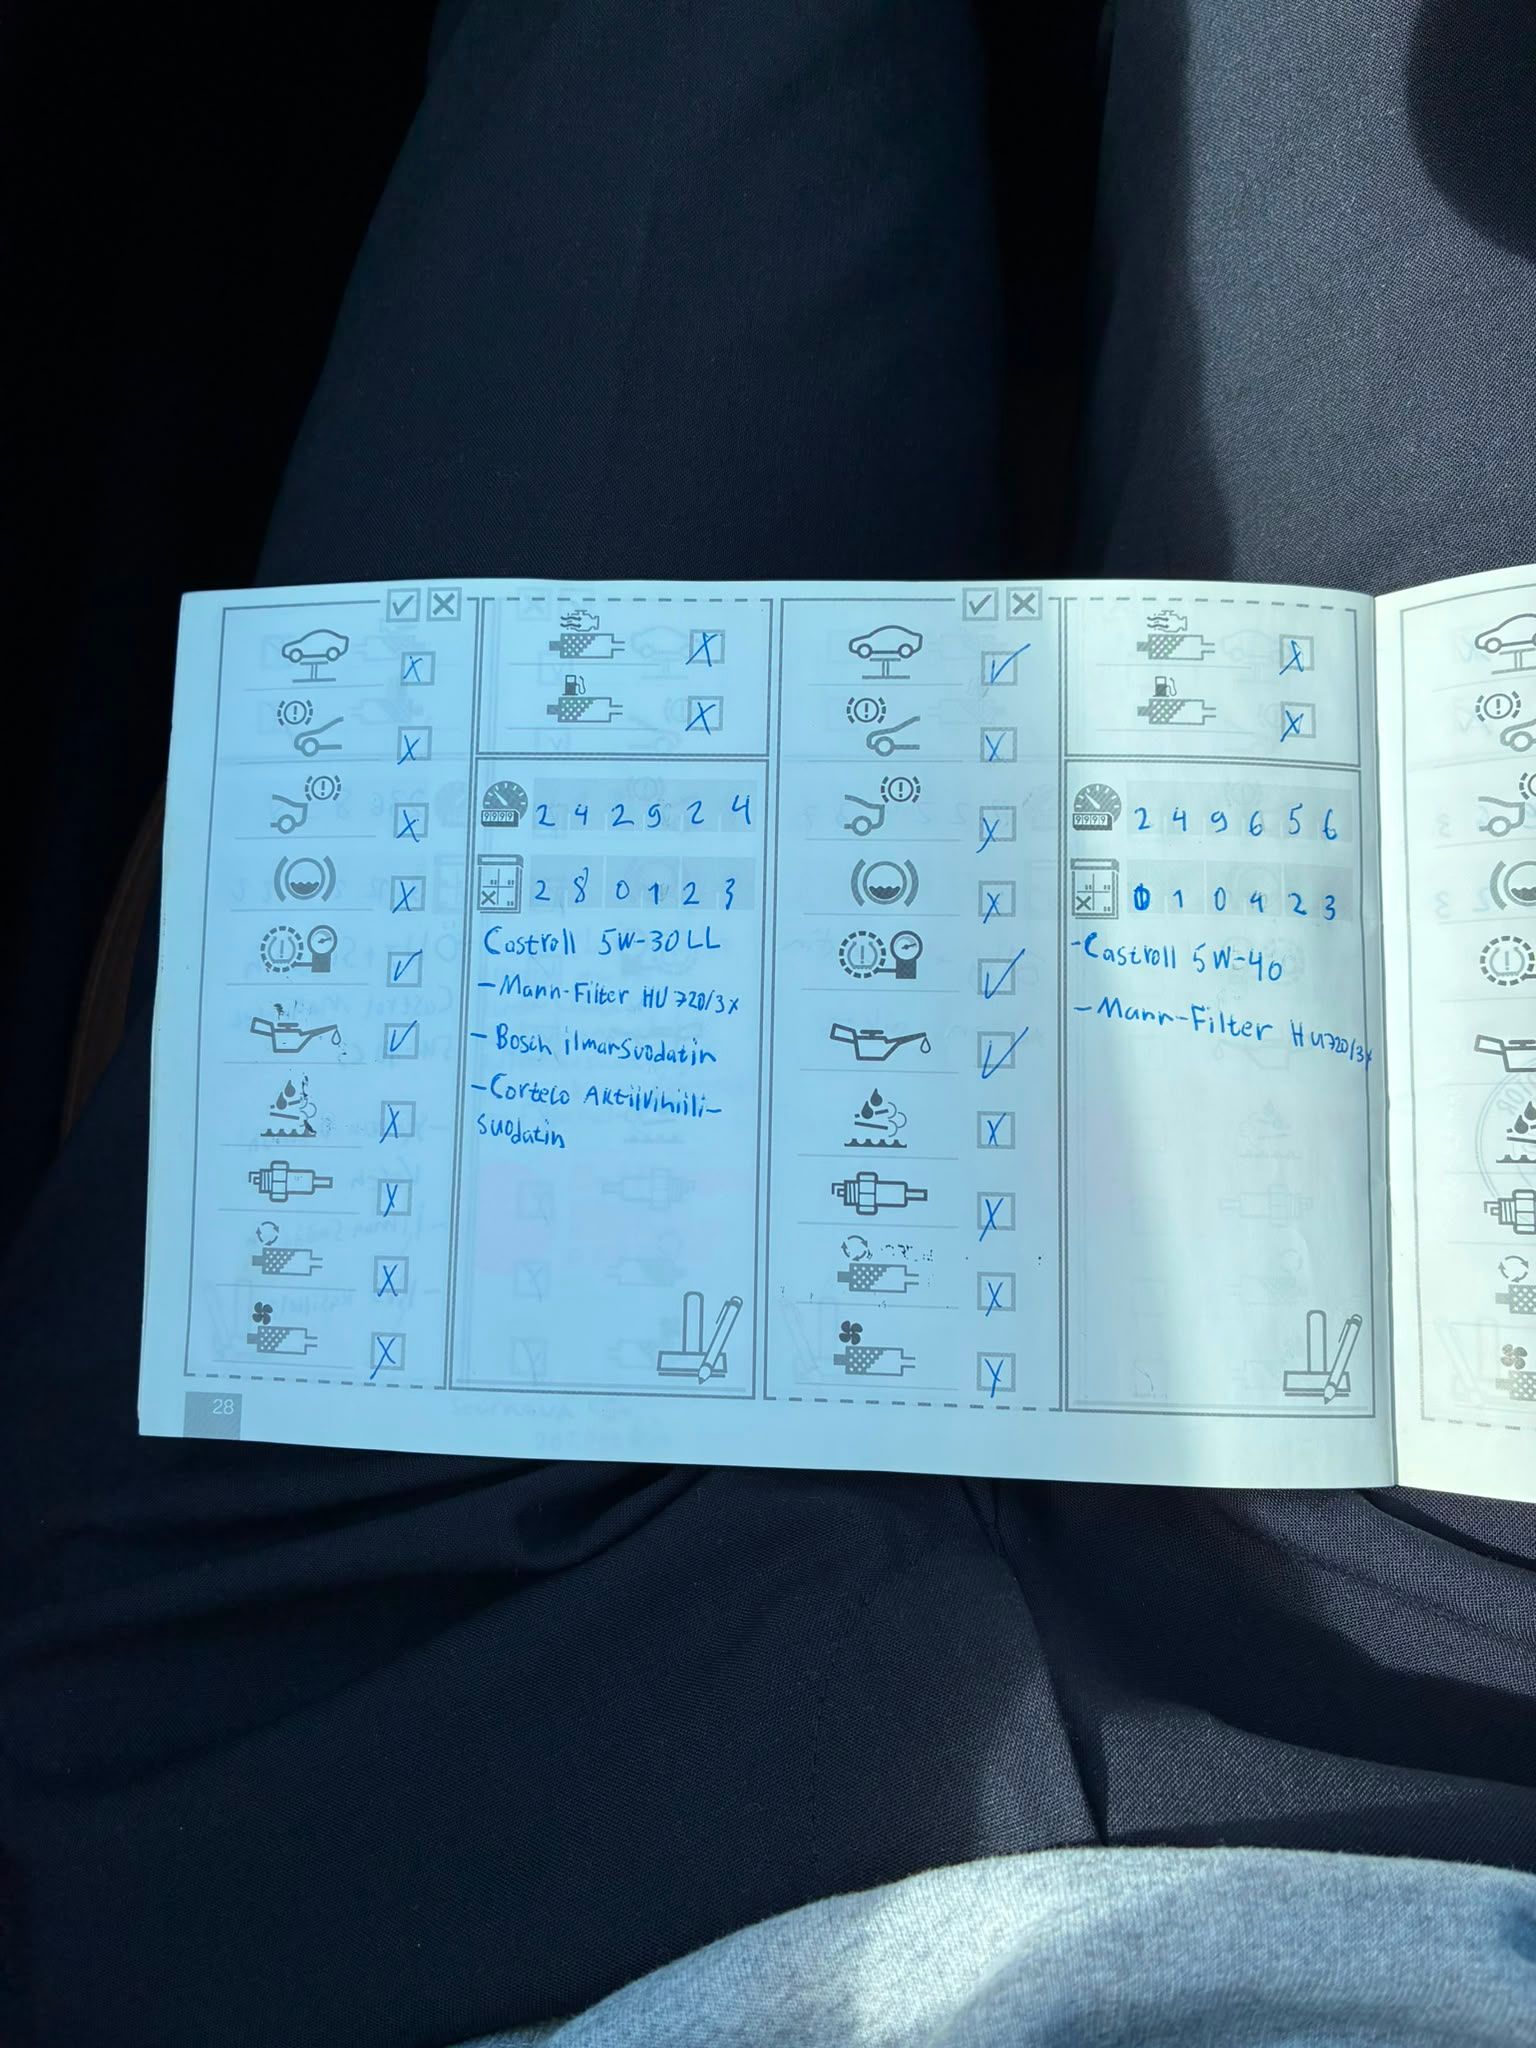 2 4 2 9 2 4
2 8 0 1 2 3
Castroll 5W-30LL
-Mann-Filter HU 720/3x
-Bosch ilmansuodatin
-Corteco Aktiivihiili-
suodatin
28
2 4 9 6 5 6
0 1 0 4 2 3
-Castroll 5W-40
-Mann-Filter HU720/3x